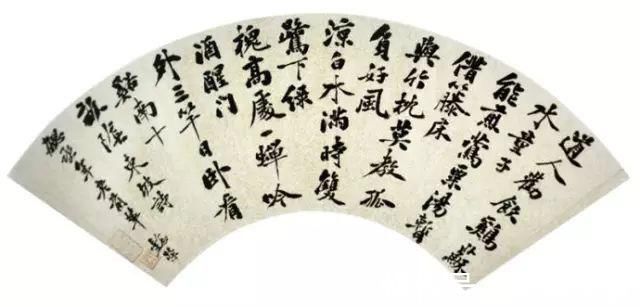 道人勸飲鷄蘇
水童子
能煎鶯粟湯暫
借藤床
與竹枕莫教孤
負好風
涼白水滿時雙
鷺下綠
槐高處一蟬吟
酒醒門
外三竿日卧看
谿南十
畝陰東坡詩
年老前輩